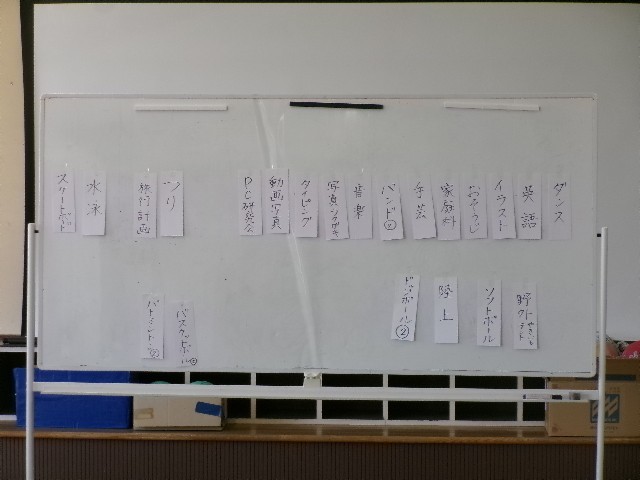 ダンス
英語
イラスト
おそうじ
家庭科
手芸
バンド②
音楽
タイピング
動画写真
PC研究会
つり
旅行計画
水泳
スケートボード
野外
ソフトボール
陸上
ドッジボール②
バスケットボール②
バドミントン②